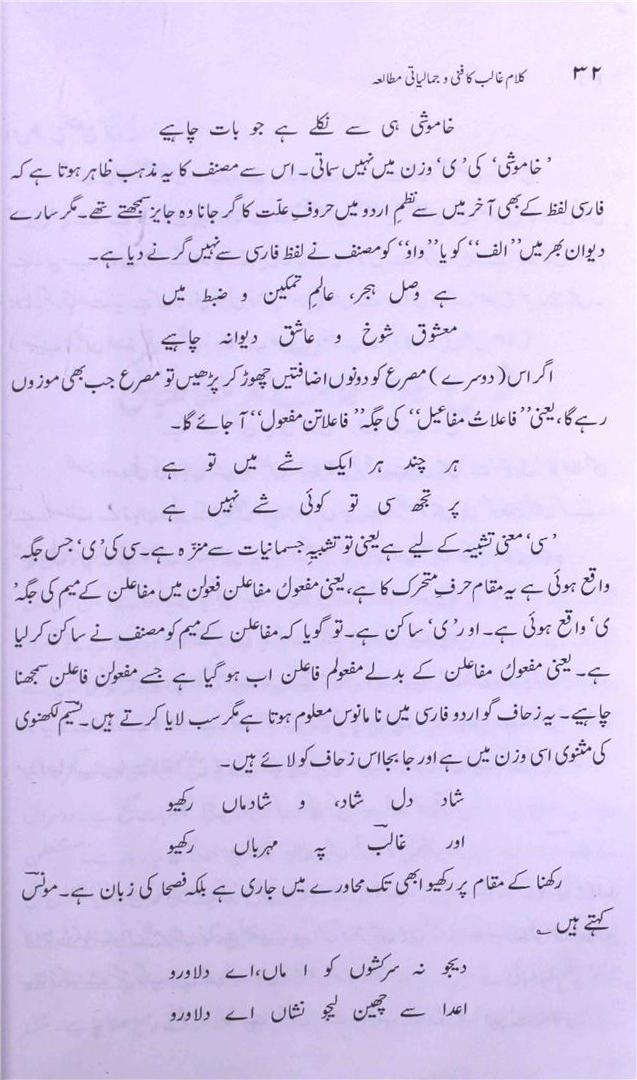 ۳۲ کلام غالب کا فنی و جمالیاتی مطالعہ
خاموشی ہی سے نکلے ہے جو بات چاہیے
’خاموشی‘ کی ’ی‘ وزن میں نہیں سماتی۔ اس سے مصنف کا یہ مذہب ظاہر ہوتا ہے کہ
فارسی لفظ کے بھی آخر میں سے نظمِ اردو میں حروفِ علّت کا گر جانا وہ جایز سمجھتے تھے۔ مگر سارے
دیوان بھر میں ’’الف‘‘ کو یا ’’واو‘‘ کو مصنف نے لفظ فارسی سے نہیں گرنے دیا ہے۔
ہے وصل ہجر، عالمِ تمکین و ضبط میں
معشوق شوخ و عاشق دیوانہ چاہیے
اگر اس (دوسرے) مصرع کو دونوں اضافتیں چھوڑ کر پڑھیں تو مصرع جب بھی موزوں
رہے گا، یعنی ’’فاعلاتُ مفاعیل‘‘ کی جگہ ’’فاعلاتن مفعول‘‘ آ جائے گا۔
ہر چند ہر ایک شے میں تو ہے
پر تجھ سی تو کوئی شے نہیں ہے
’سی‘ معنیِ تشبیہ کے لیے ہے یعنی تو تشبیہِ جسمانیات سے منزّہ ہے۔ سی کی ’ی‘ جس جگہ
واقع ہوئی ہے یہ مقام حرفِ متحرک کا ہے، یعنی مفعول مفاعلن فعولن میں مفاعلن کے میم کی جگہ ’
ی‘ واقع ہوئی ہے۔ اور ’ی‘ ساکن ہے۔ تو گویا کہ مفاعلن کے میم کو مصنف نے ساکن کر لیا
ہے۔ یعنی مفعول مفاعلن کے بدلے مفعولم فاعلن اب ہو گیا ہے جسے مفعولن فاعلن سمجھنا
چاہیے۔ یہ زحاف گو اردو فارسی میں نامانوس معلوم ہوتا ہے مگر سب لایا کرتے ہیں۔ نسیم لکھنوی
کی مثنوی اسی وزن میں ہے اور جا بجا اس زحاف کو لائے ہیں۔
شاد دل شاد، و شادماں رکھیو
اور غالب پہ مہرباں رکھیو
رکھنا کے مقام پر رکھیو ابھی تک محاورے میں جاری ہے بلکہ فصحا کی زبان ہے۔ مونس
کہتے ہیں ؎
دیجو نہ سرکشوں کو اماں، اے دلاورو
اعدا سے چھین لیجو نشاں اے دلاورو